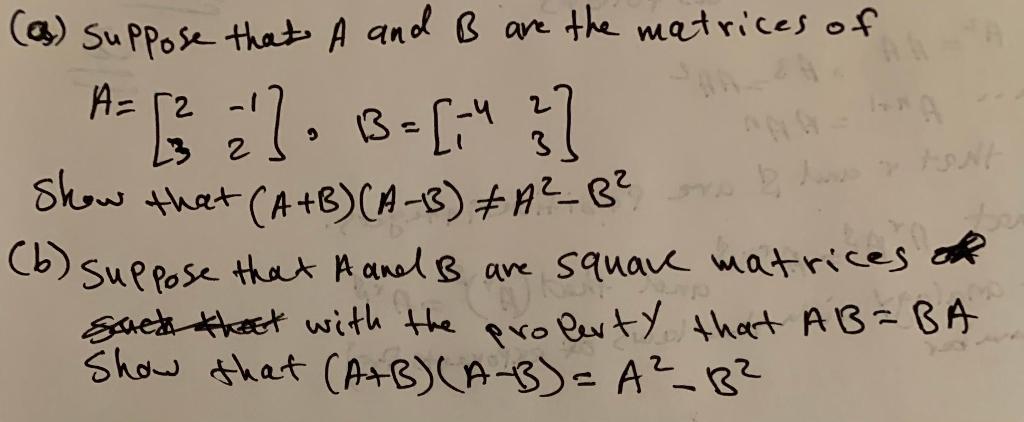 (a) Suppose that A and B are the matrices of
A = [2 -1
3 2], B = [-4 2
1 3]
Show that (A+B)(A-B) ≠ A² - B²
(b) Suppose that A and B are square matrices
with the property that AB = BA
Show that (A+B)(A-B) = A² - B²